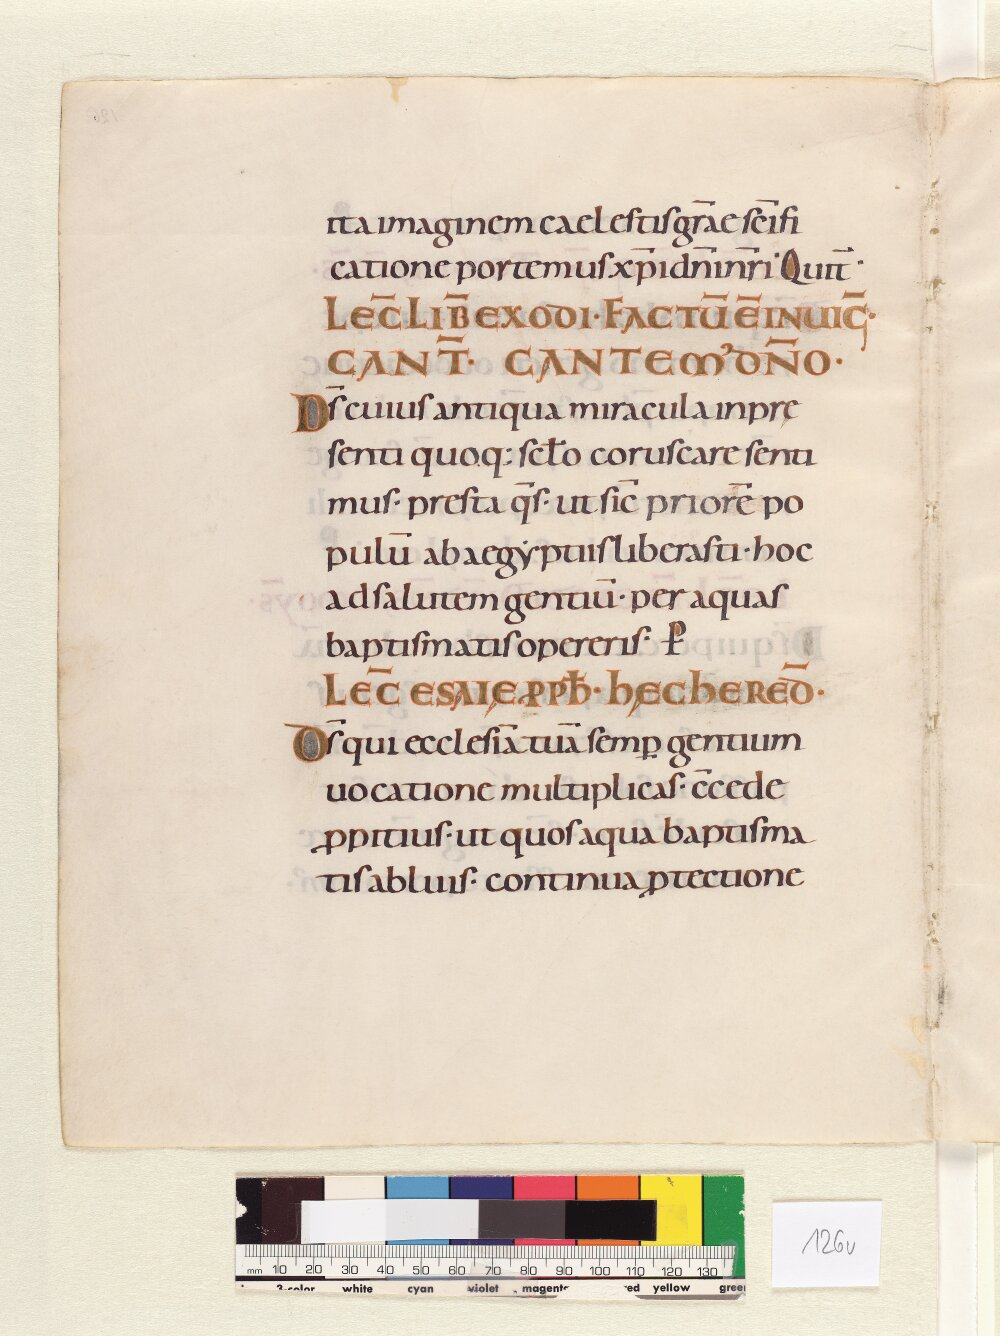 ita imaginem caelestis gr̄ae sc̄ifi
catione portemus xp̄i dn̄i nr̄i · Qui t̄ ·
LEC̄ LIB̄ EXODI · FACTŪ Ē IN UIC̄ ·
CANT̄ · CANTEM' DN̄O ·
Ds̄ cuius antiqua miracula in pre
senti quoq: sclo coruscare senti
mus · presta q̄s · ut sic̄ priorē po
pulū ab aegyptiis liberasti · hoc
ad salutem gentiū · per aquas
baptismatis opereris · P̄
LEC̄ ESAIE PPH · HEC HERED̄ ·
Ds̄ qui ecclesiā tuā semꝑ gentium
uocatione multiplicas · c̄cede
ꝓpitius · ut quos aqua baptisma
tis abluis · continua ꝓtectione
126v
mm 10 20 30 40 50 60 70 80 90 100 110 120 130
3-color white cyan violet magenta red yellow green